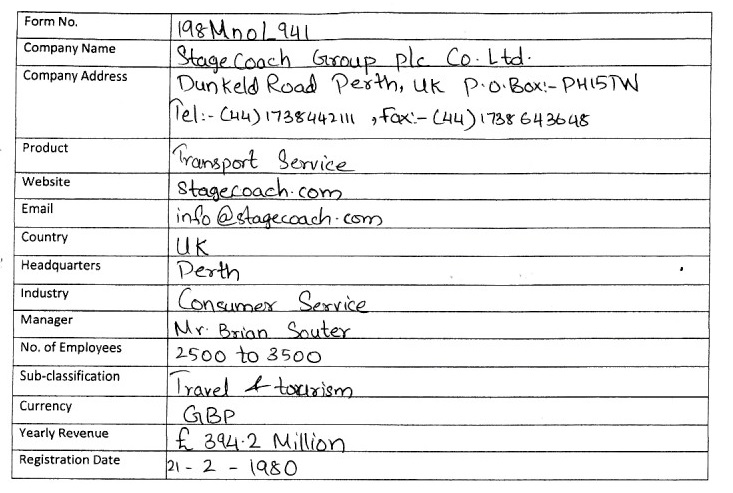 Form No. 198MnoL941
Company Name Stagecoach Group plc Co. Ltd.
Company Address Dunkeld Road Perth, UK P.O.Box:- PH15TW
Tel:- (44) 1738442111 , Fax:- (44) 1738 643648
Product Transport Service
Website Stagecoach.com
Email info@stagecoach.com
Country UK
Headquarters Perth
Industry Consumer Service
Manager Mr. Brian Souter
No. of Employees 2500 to 3500
Sub-classification Travel & tourism
Currency GBP
Yearly Revenue £ 394.2 Million
Registration Date 21 - 2 - 1980